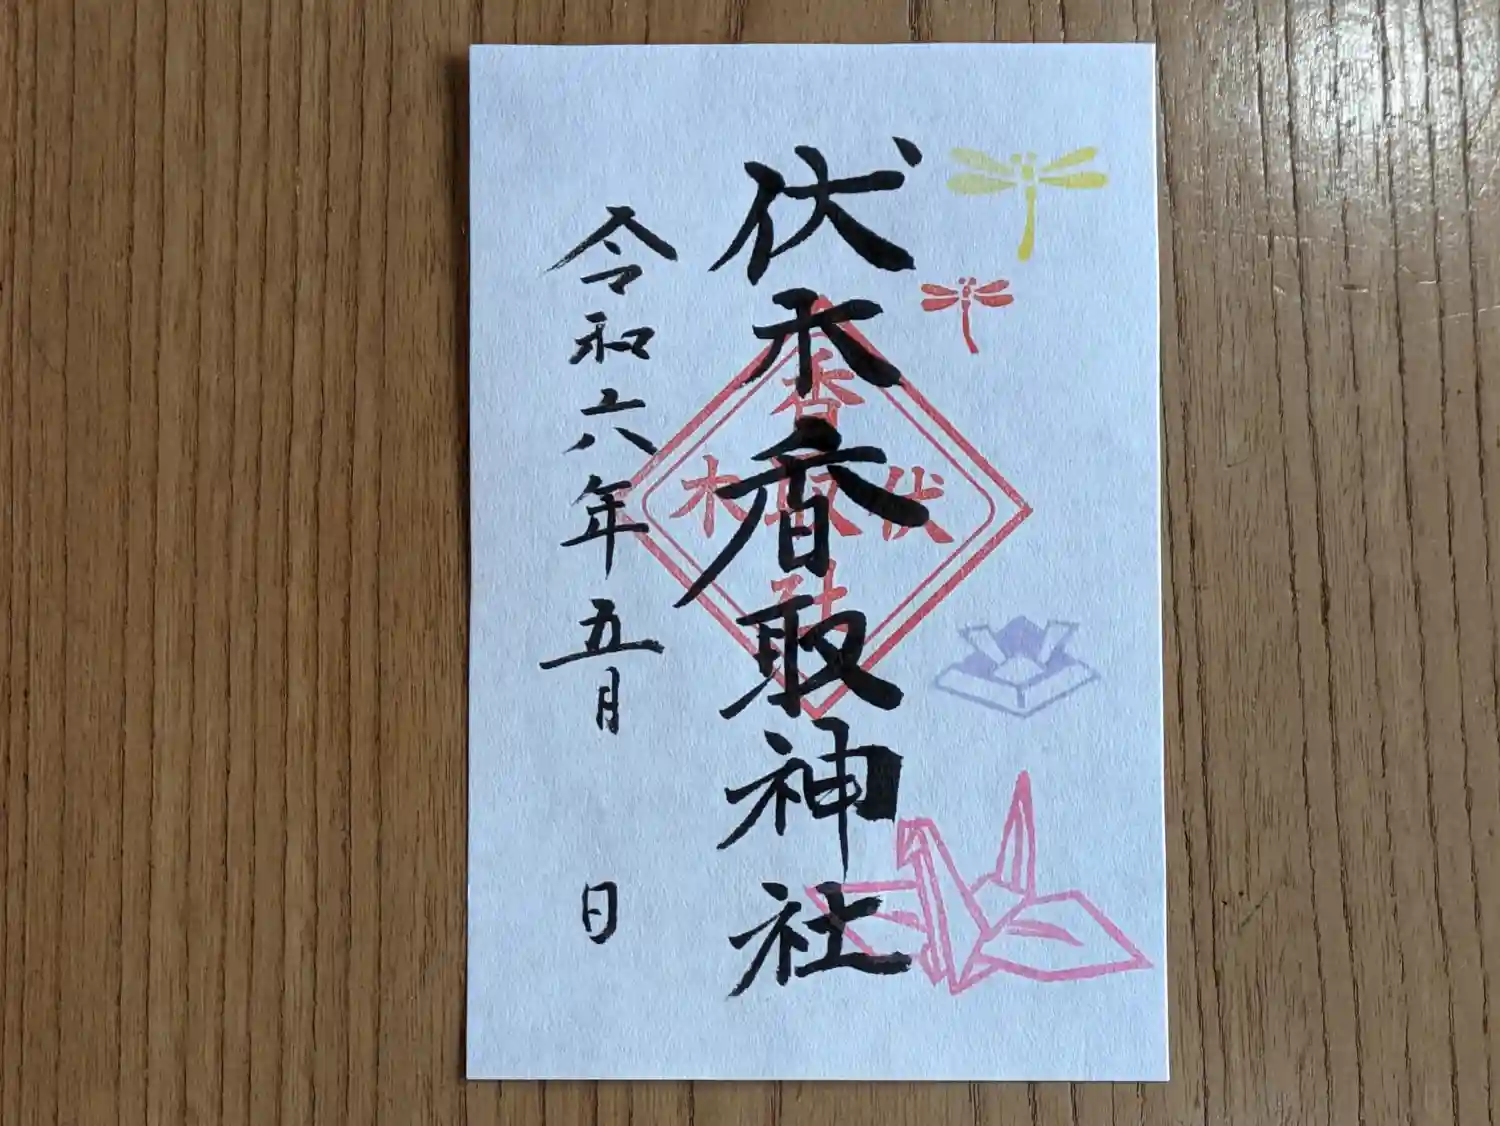 伏木香取神社
令和六年五月 日
香
伏取木
社